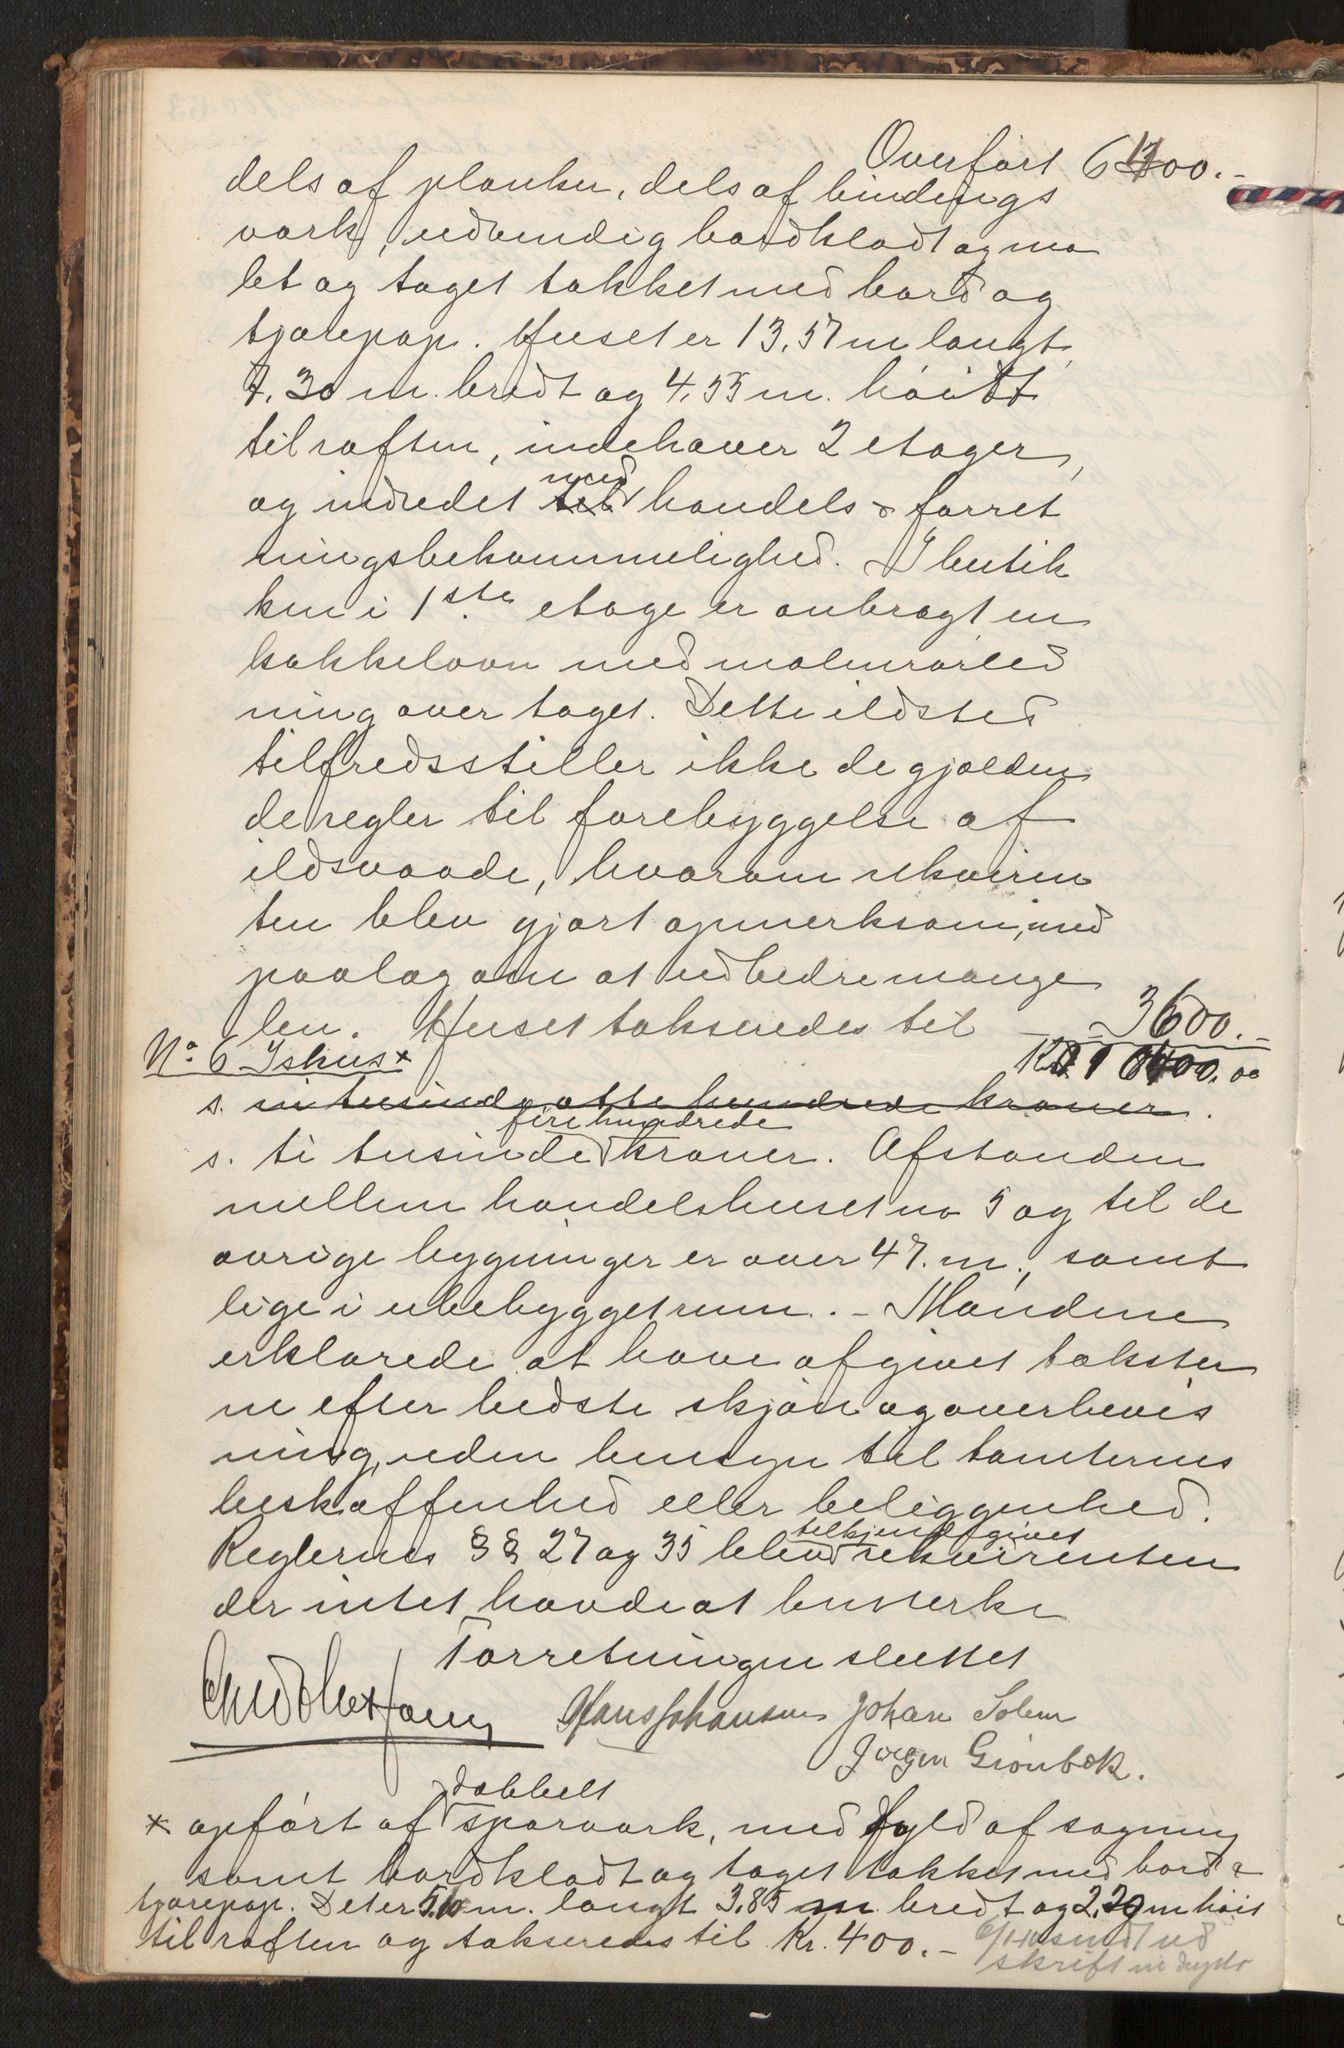 Overført 6400.-
dels af planker, dels af bindings
værk, udvendig bordklædt og ma
let og taget tækket med bord og
tjærepap. Huset er 13,57 m langt,
7.30 m. bredt og 4,55 m. høitt
til raften, indehaver 2 etager,
og indredet til med handels & forret
ningsbekvemmelighed. I butik
ken i 1ste etage er anbragt en
kakkelovn med malmrørled
ning over taget. Dette ildsted
tilfredsstiller ikke de gjælden
de regler til forebyggelse af
ildsvaade, hvorom rekviren
ten blev gjort opmerksom, med
paalæg om at udbedre mange
len. Huset takseredes til — 3600.-
No 6 Ishus x Kr 10400.00
s. ti tusinde otte hundrede kroner.
s. ti tusinde fire hundrede kroner. Afstanden
mellem handelshuset no 5 og til de
øvrige bygninger er over 47. m., samt
lige i ubebygget rum. - Mændene
erklærede at have afgivet takster
ne efter bedste skjøn og overbevis
ning, uden hensyn til tomternes
beskaffenhed eller beliggenhed.
Reglernes §§ 27 og 35 blev tilkjendegivet rekvirenten
der intet havde at bemerke
Forretningen sluttet
Hans Johansen Johan Solem
Jørgen Grønbæk.
x opført af dobbelt sparværk, med fyld af sagmug
samt bordklædt og taget tækket med bord &
tjærepap. Det er 5.10 m. langt 3.85 m bredt og 2,20 m høit
til raften og takseredes til Kr. 400.-
udsendt ud
skrift